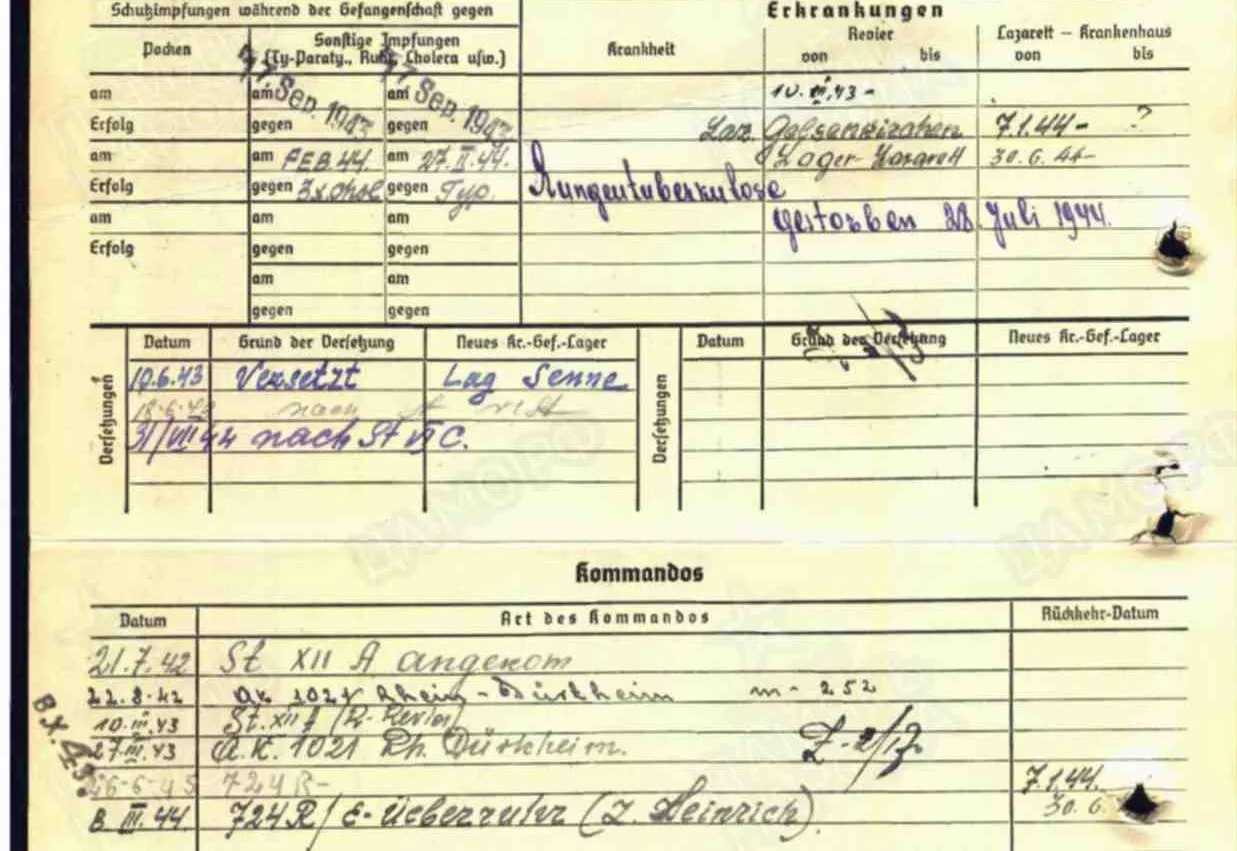 Schutzimpfungen während der Gefangenschaft gegen
Erkrankungen
Pocken
Sonstige Impfungen
(Ty-Paraty., Ruhr, Cholera usw.)
Krankheit
Revier
von bis
Lazarett – Krankenhaus
von bis
am am am 10. III. 43 -
Sep. 1943 Sep. 1943
Erfolg gegen gegen Laz. Gelsenkirchen 7.1.44 - ?
am am FEB. 44. am 27. II. 44. Lager-Lazarett 30. 6. 44 -
Erfolg gegen 3x Chol gegen Typ. Lungentuberkulose
am am am gestorben 28. Juli 1944.
Erfolg gegen gegen
am am
gegen gegen
Versetzungen
Datum Grund der Versetzung Neues Kr.-Gef.-Lager
Versetzungen
Datum Grund der Versetzung Neues Kr.-Gef.-Lager
10.6.43 Versetzt Lag Senne
nach St
nach St VI C.
Kommandos
Datum Art des Kommandos Rückkehr-Datum
21.7.42 St XII A angenom
22.8.42 Rhein-Dürkheim m - 252
10. III. 43 St. XII A (R-Revier)
27. III. 43 A.K. 1021 Rh. Dürkheim.
26-6-43 724 R- 7.1.44.
8. III. 44. 724 R/ E-Ueberruhr (Z. Heinrich) 30. 6
ЦАМО РФ